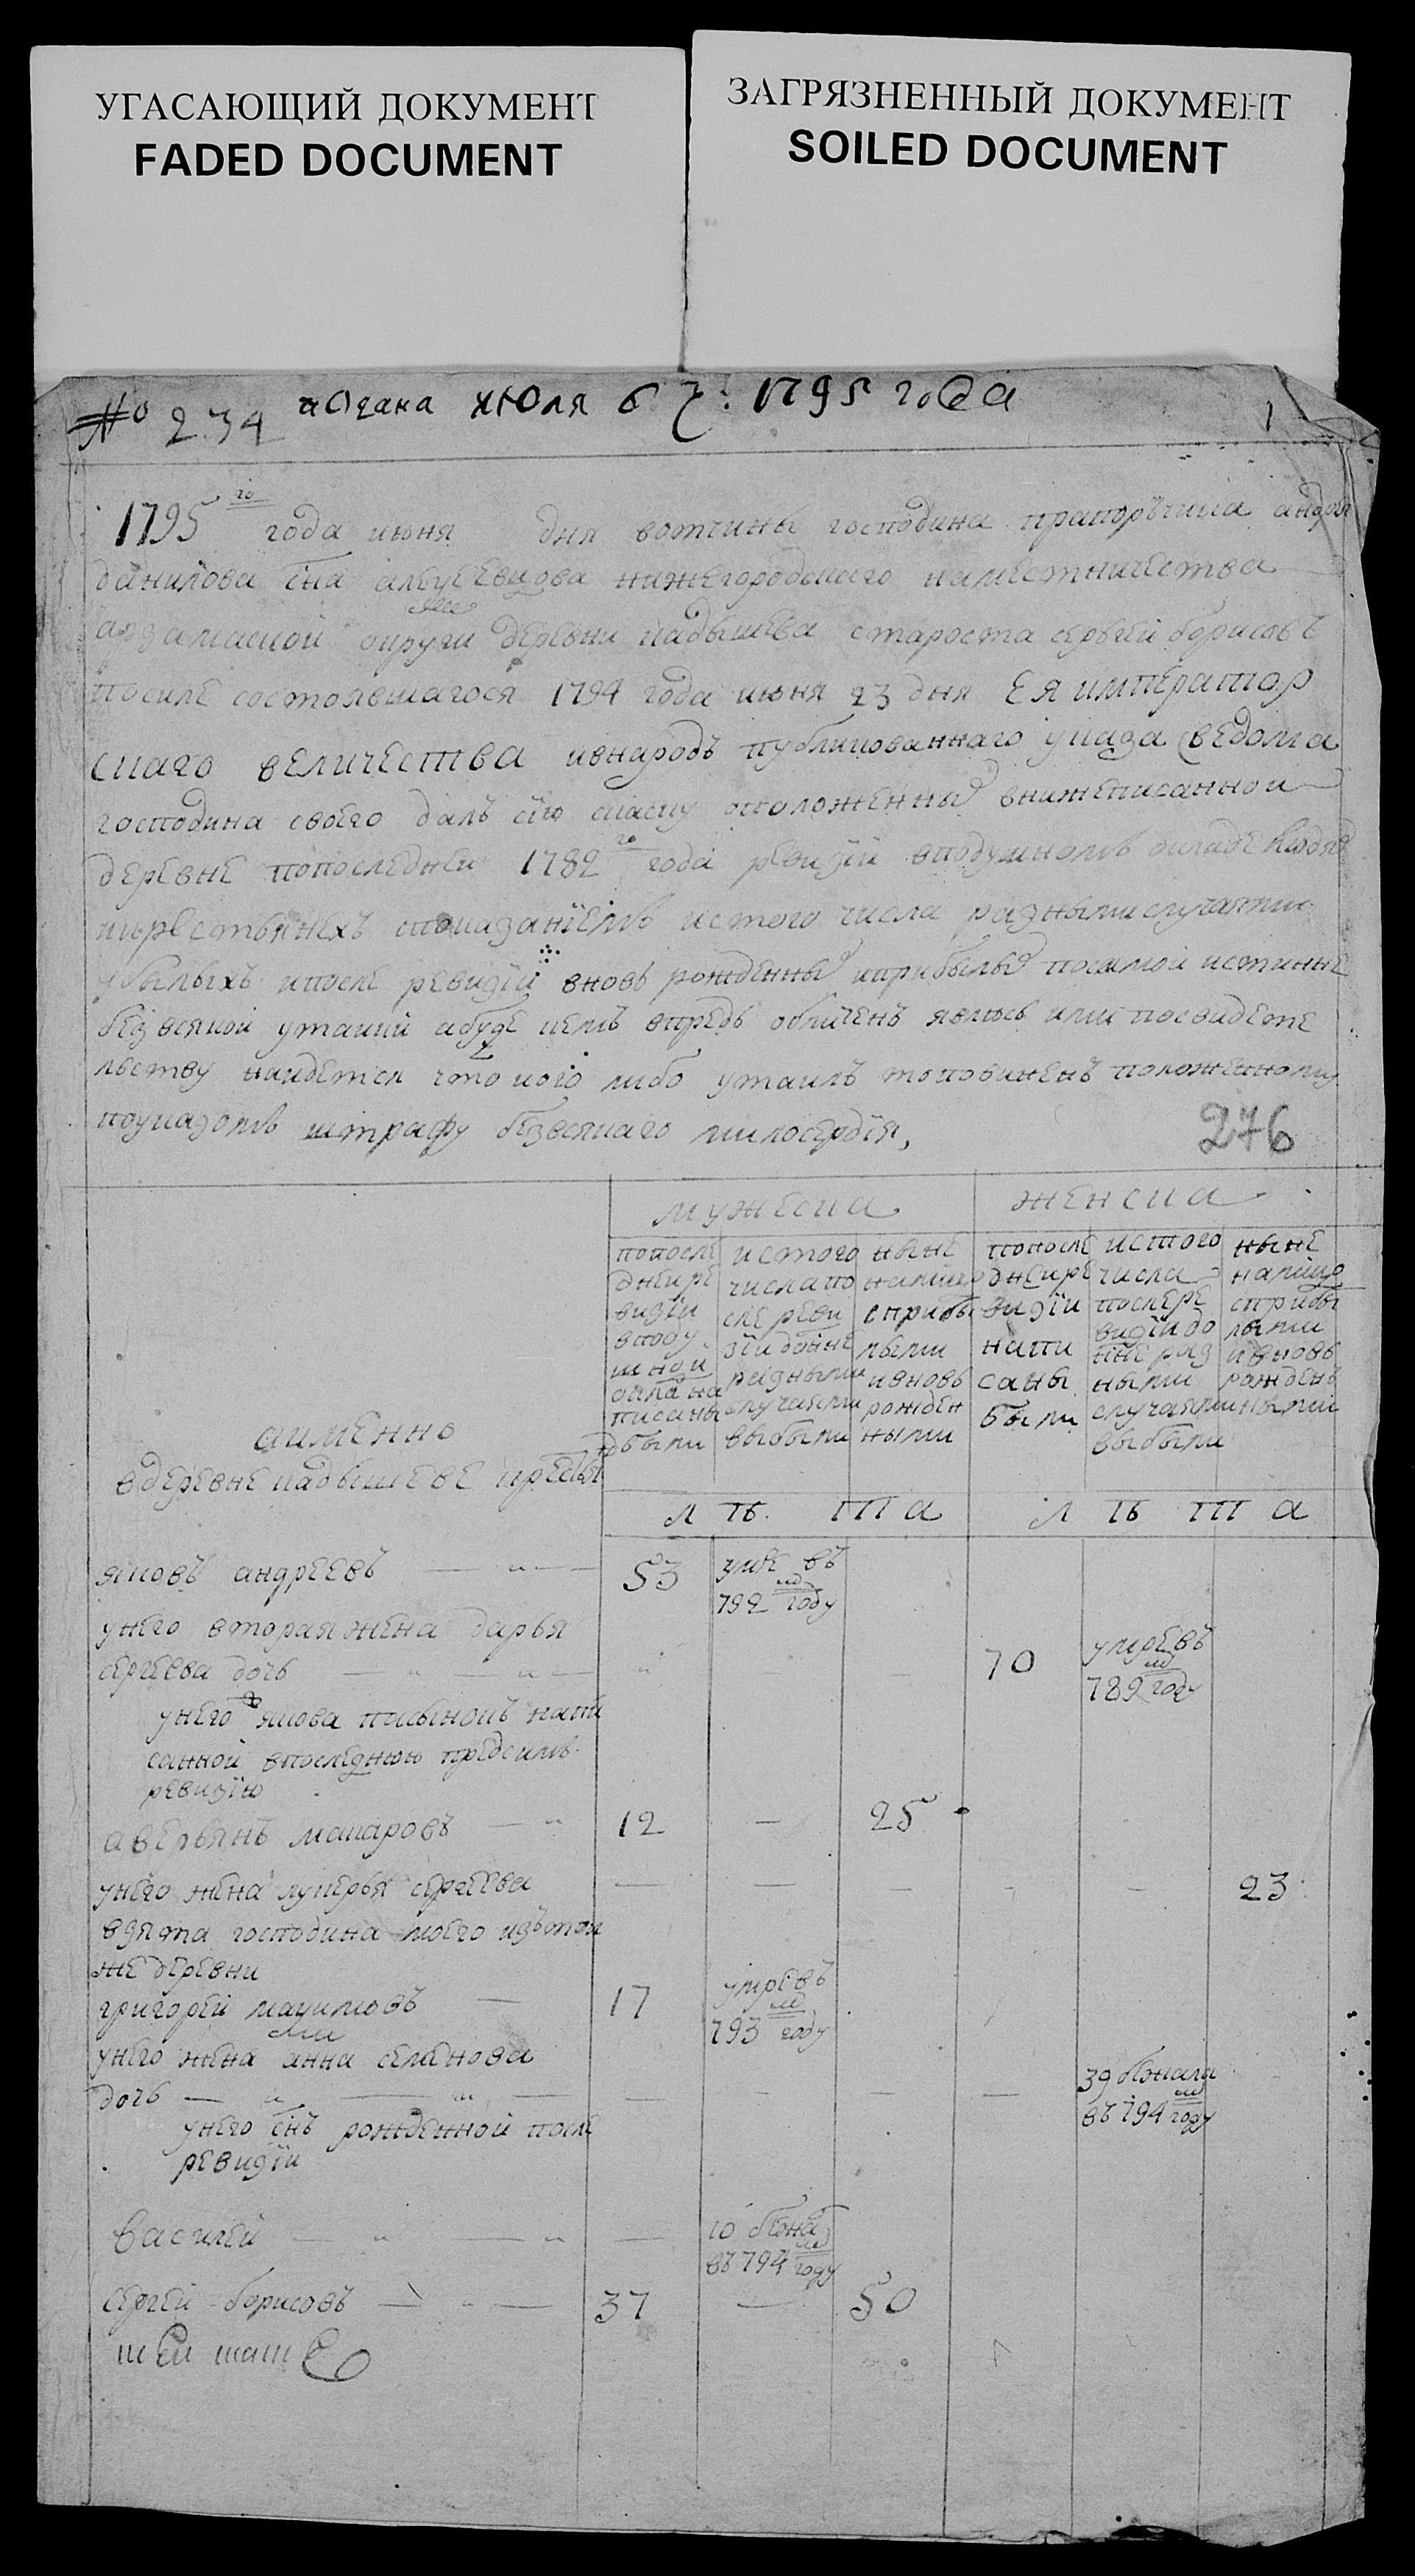 УГАСАЮЩИЙ ДОКУМЕНТ
FADED DOCUMENT
ЗАГРЯЗНЕННЫЙ ДОКУМЕНТ
SOILED DOCUMENT
№ 234 подана июля 6 ч: 1795 года 1
1795го года июня дня вотчины господина прапорщика андрея
данилова сна нижегородскаго наместничества
арзамаской округи деревни кадышева староста сергей борисовъ
посиле состоявшагося 1794 года июня 23 дня ЕЯ император
скаго величества ивнародъ публикованнаго указа сведома
господина своего далъ сїю скаску оположенных внижеписанной
деревне попоследней 1782го года ревизїи вподушномъ окладе
спаказанїемъ истого числа разными случаями
убылыхъ ипосле ревизїи вновь рожденных иприбылых посамой истинне
без всякой утайки абуде кемъ впредь обличенъ явлюсь или посвидете
льству найдется что кого либо утаилъ то повиненъ положенному
поуказомъ штрафу безвсякаго милосердїя,
276
мужеска женска
попосле дней ре визїи вподу шной окла на писаны были
истого числа по сле реви зїи до ннѣ разными случаями выбыли
ныне налицо сприбы лыми ивновь рожден ными
попосле дней ре визїи напи саны были
истого числа после ре визїи до ннѣ раз ными случаями выбыли
ныне налицо сприбы лыми ивновь рожден ными
аименно
вдеревне кадышеве крестья
л ѣ т а л ѣ т а
яковъ андреевъ 53 умре въ 792 году
унего вторая жена дарья
сергеева дочь 70 умре въ 789м году
унего якова пасынокъ напи
санной впоследнюю предсимъ
ревизїю
аверьянъ макаровъ 12 — 25
унего жена лукерья сергеева — — — — — 23
взята господина моего изътой
же деревни
григорей макимовъ 17 умре въ 793м году
унего жена анна семенова
дочь — — — — — 39 бежала въ 794м году
унего снъ рожденной после
ревизїи
василей — 10 бежа въ 794м году
сергей борисовъ — 37 — 50